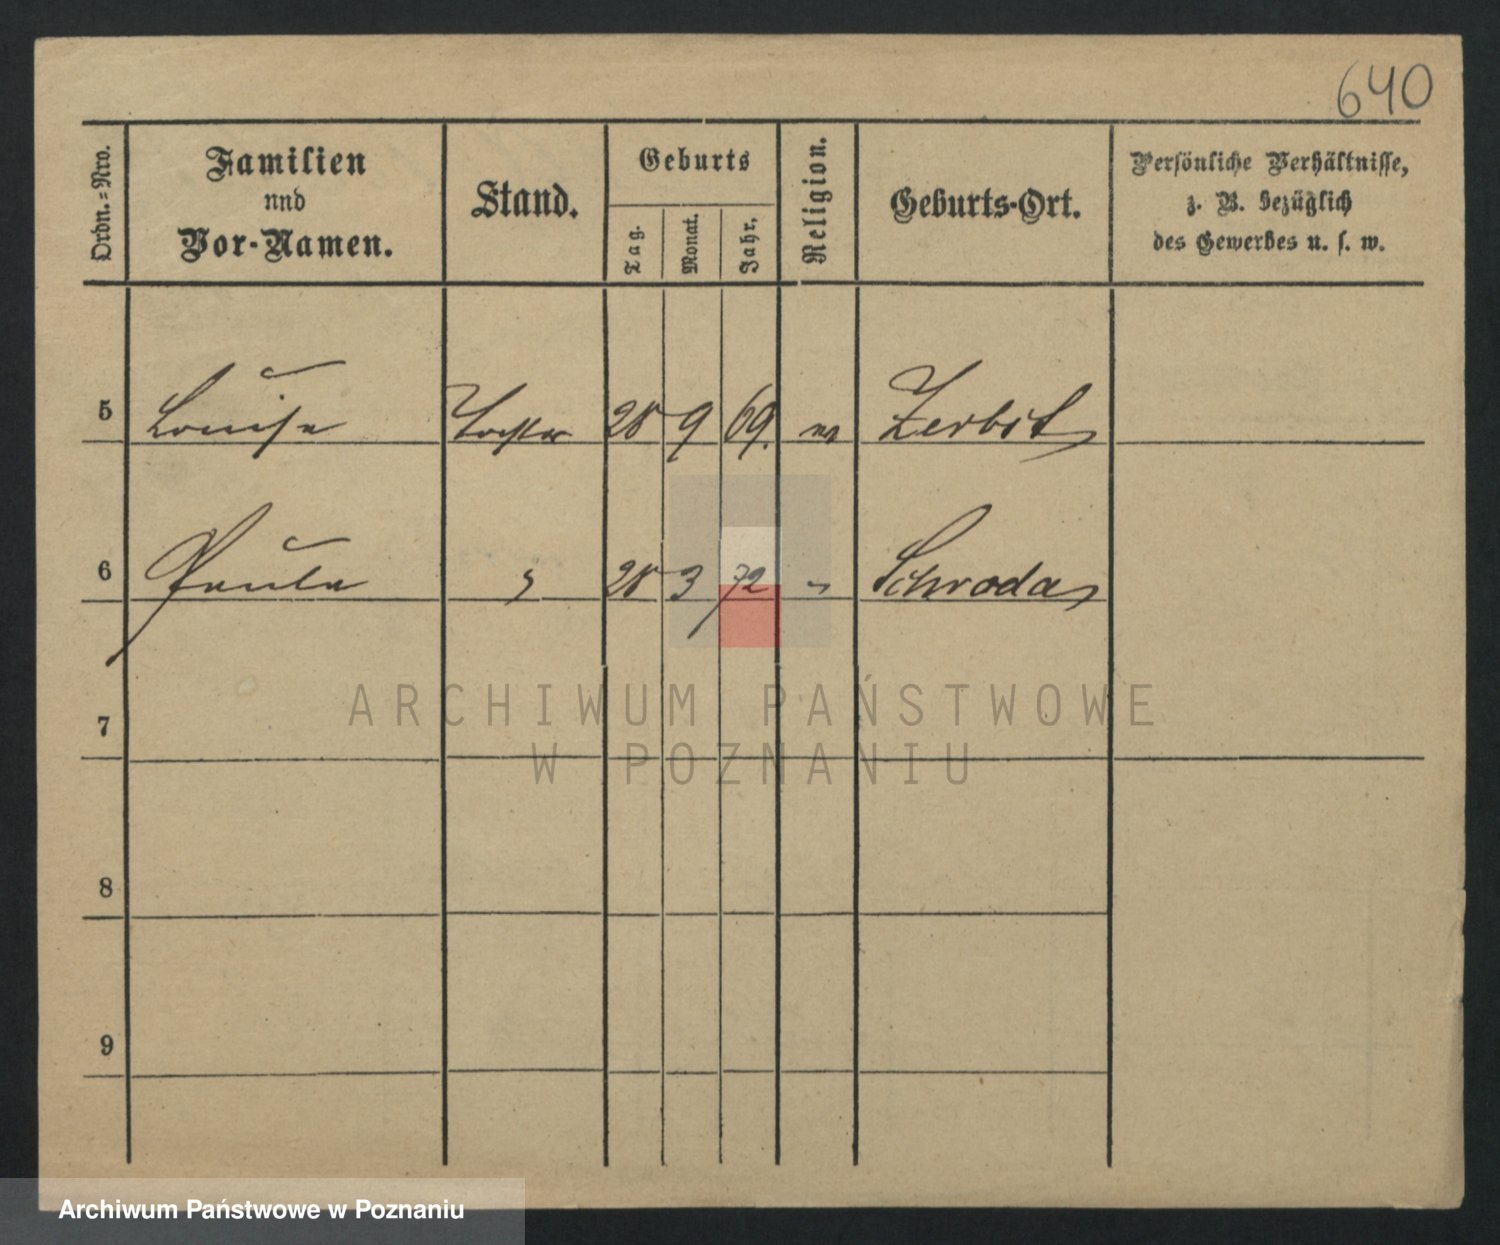 640
Ordn.=Nro.
Familien
und
Vor-Namen.
Stand.
Geburts
Tag.
Monat.
Jahr.
Religion.
Geburts-Ort.
Persönliche Verhältnisse,
z. B. bezüglich
des Gewerbes u. s. w.
5 Louise Tochter 28 9 69. ev Zerbst
6 Paula " 28 3 72 " Schroda
7
8
9
ARCHIWUM PAŃSTWOWE
W POZNANIU
Archiwum Państwowe w Poznaniu